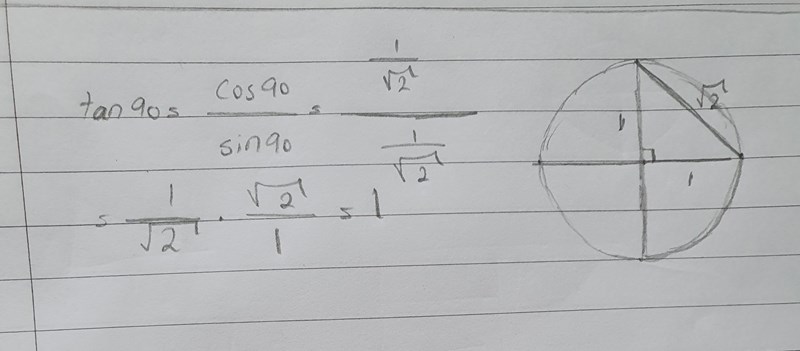 tan 90 = cos 90 / sin 90 = (1/√2) / (1/√2)
= 1/√2 · √2/1 = 1
√2
1
1